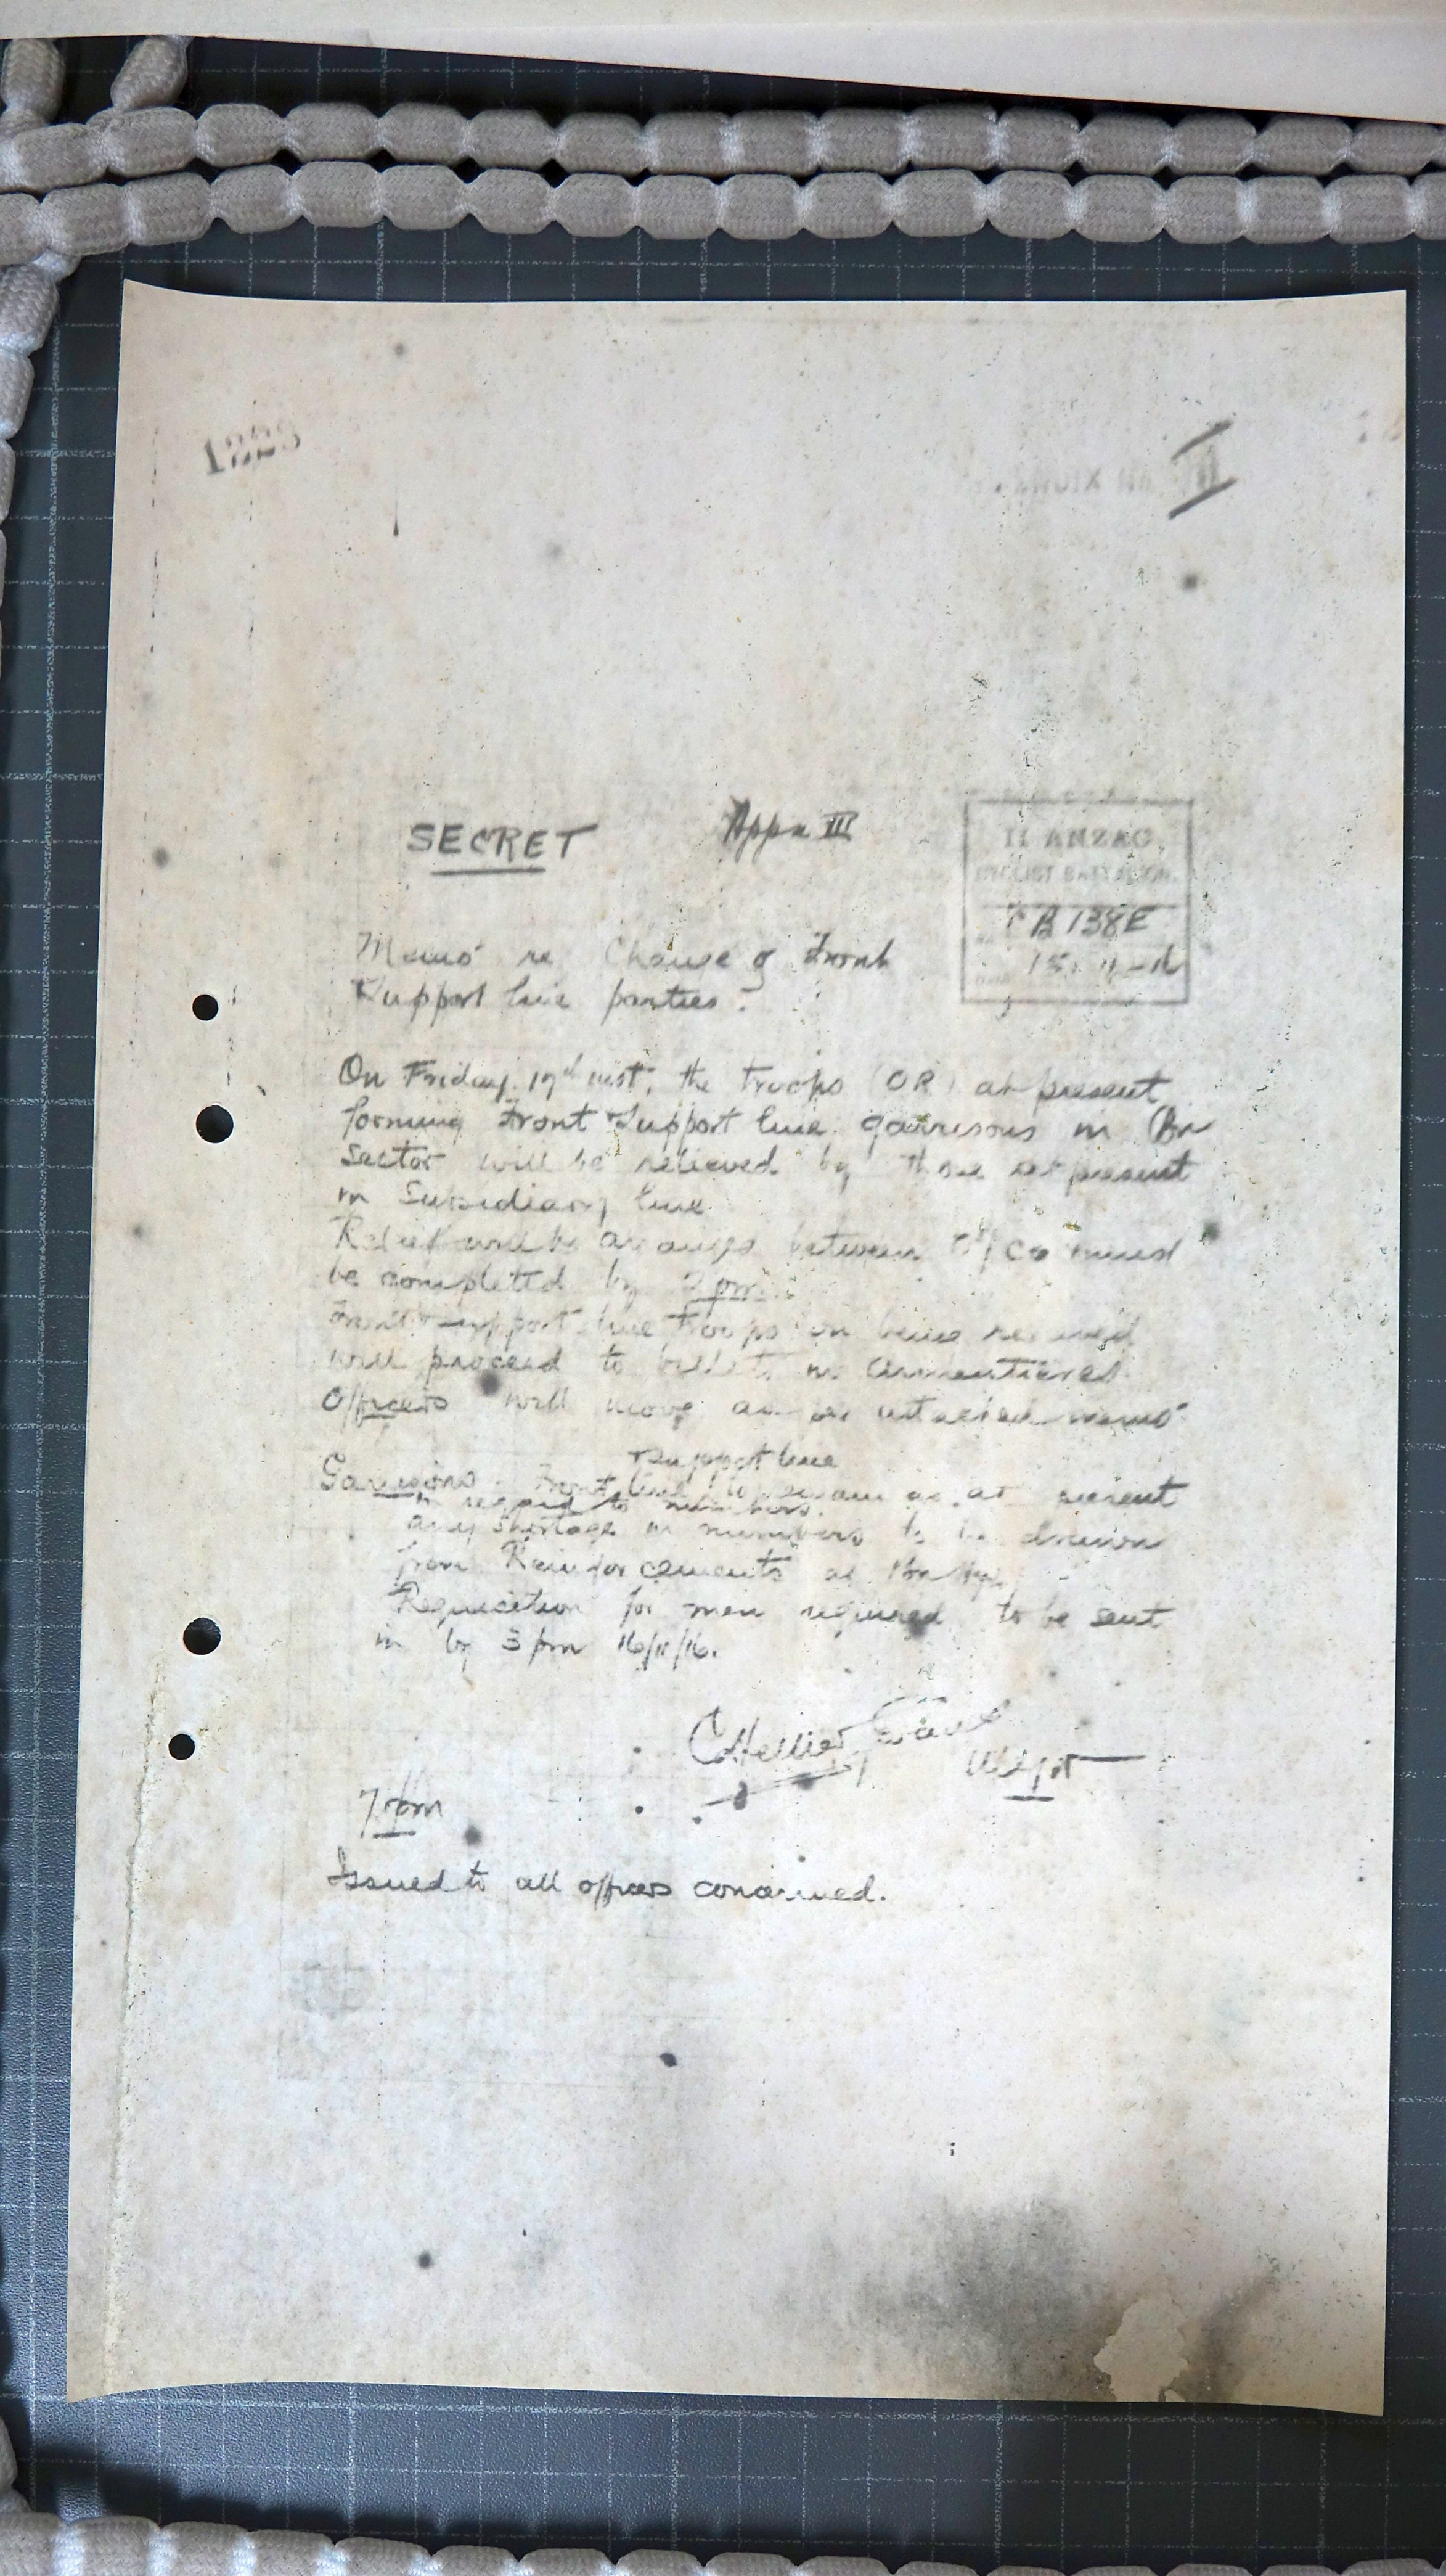 1223
SECRET Appx III
II ANZAC
CYCLIST BATTALION
CB 138E
15.11.16
Memo re Change of Front
Support line parties.
On Friday 17th inst. the troops (OR) at present
forming Front & Support line garrisons in Bn
Sector will be relieved by those at present
in Subsidiary line
Relief will be arranged between O/C Co's & must
be completed by 2 pm.
Front & Support line troops on being relieved
will proceed to billets in Armentieres
Officers will move as per attached memo
Support line
Garrisons - Front line to remain as at present
in regard to numbers.
any shortage in numbers to be drawn
from Reinforcements at Bn Hqr.
Requisition for men required to be sent
in by 3 pm 16/11/16.
7 pm
Issued to all officers concerned.